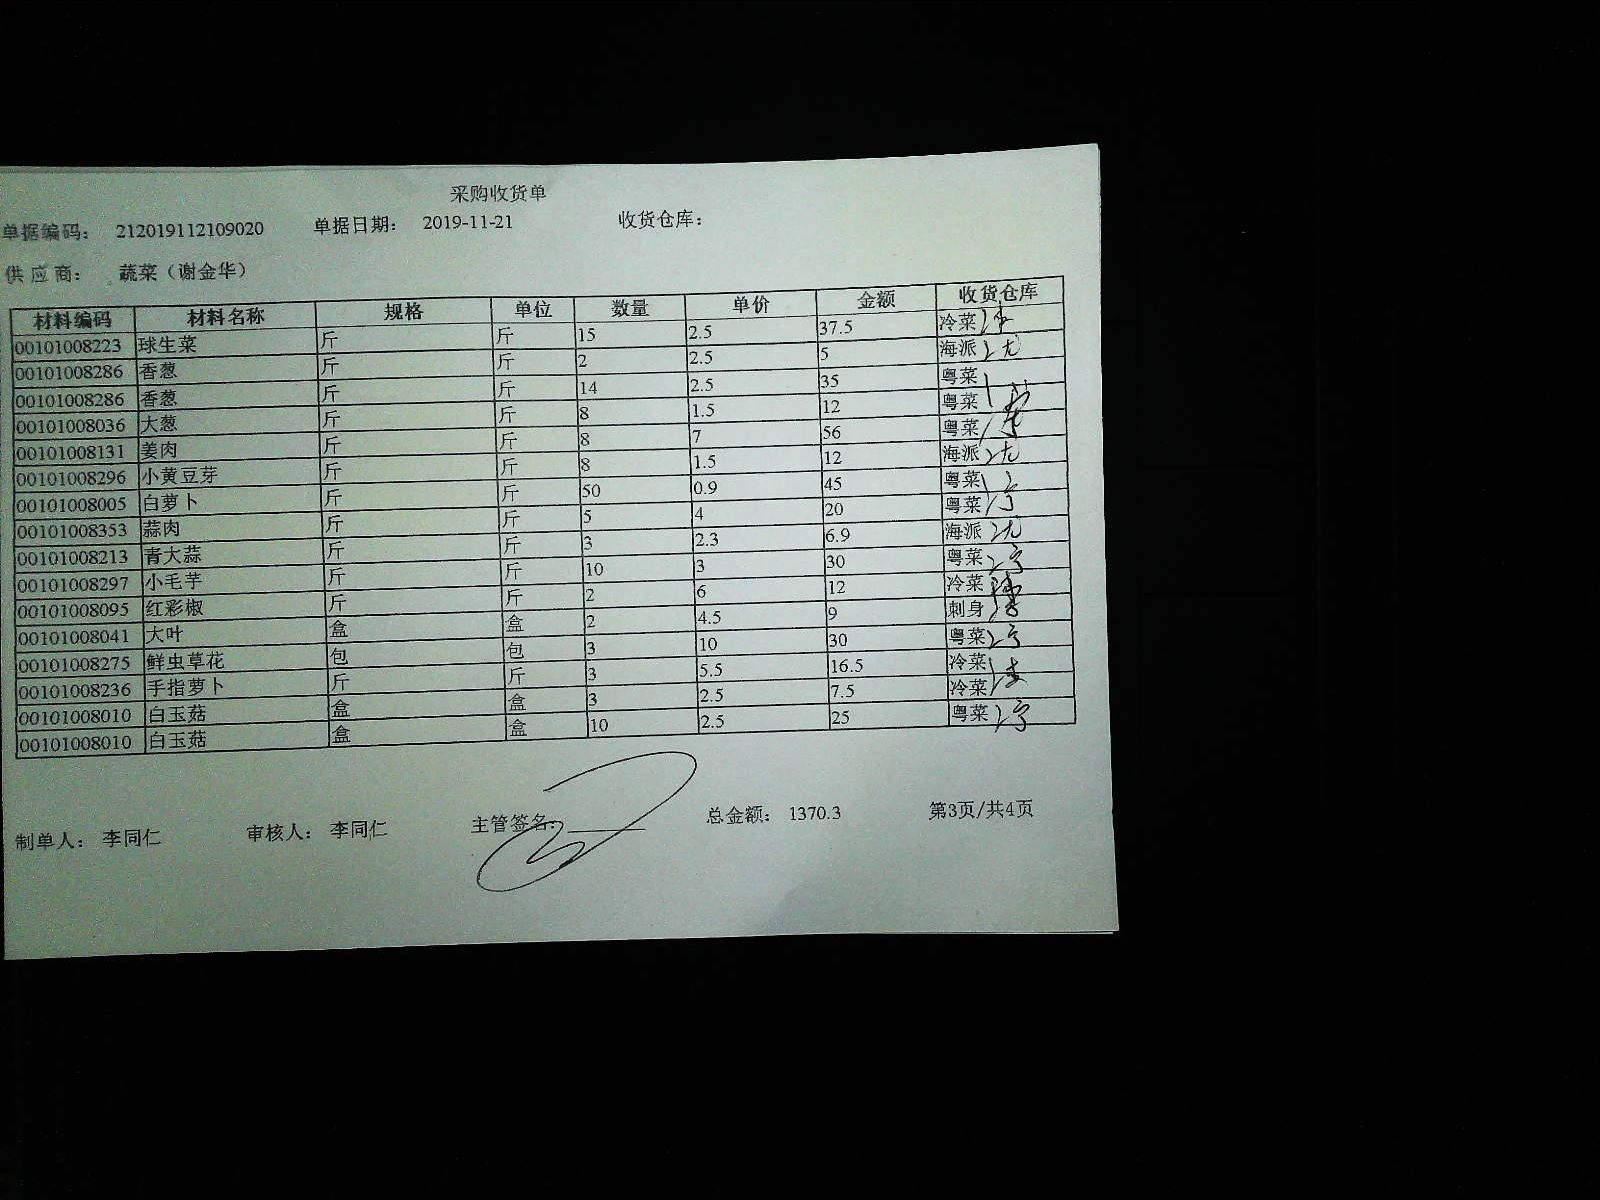 采购收货单
单据编码： 212019112109020 单据日期： 2019-11-21 收货仓库：
供 应 商： 蔬菜（谢金华）
材料编码 材料名称 规格 单位 数量 单价 金额 收货仓库
00101008223 球生菜 斤 斤 15 2.5 37.5 冷菜
00101008286 香葱 斤 斤 2 2.5 5 海派
00101008286 香葱 斤 斤 14 2.5 35 粤菜
00101008036 大葱 斤 斤 8 1.5 12 粤菜
00101008131 姜肉 斤 斤 8 7 56 粤菜
00101008296 小黄豆芽 斤 斤 8 1.5 12 海派
00101008005 白萝卜 斤 斤 50 0.9 45 粤菜
00101008353 蒜肉 斤 斤 5 4 20 粤菜
00101008213 青大蒜 斤 斤 3 2.3 6.9 海派
00101008297 小毛芋 斤 斤 10 3 30 粤菜
00101008095 红彩椒 斤 斤 2 6 12 冷菜
00101008041 大叶 盒 盒 2 4.5 9 刺身
00101008275 鲜虫草花 包 包 3 10 30 粤菜
00101008236 手指萝卜 斤 斤 3 5.5 16.5 冷菜
00101008010 白玉菇 盒 盒 3 2.5 7.5 冷菜
00101008010 白玉菇 盒 盒 10 2.5 25 粤菜
制单人： 李同仁 审核人： 李同仁 主管签名： 总金额： 1370.3 第3页/共4页